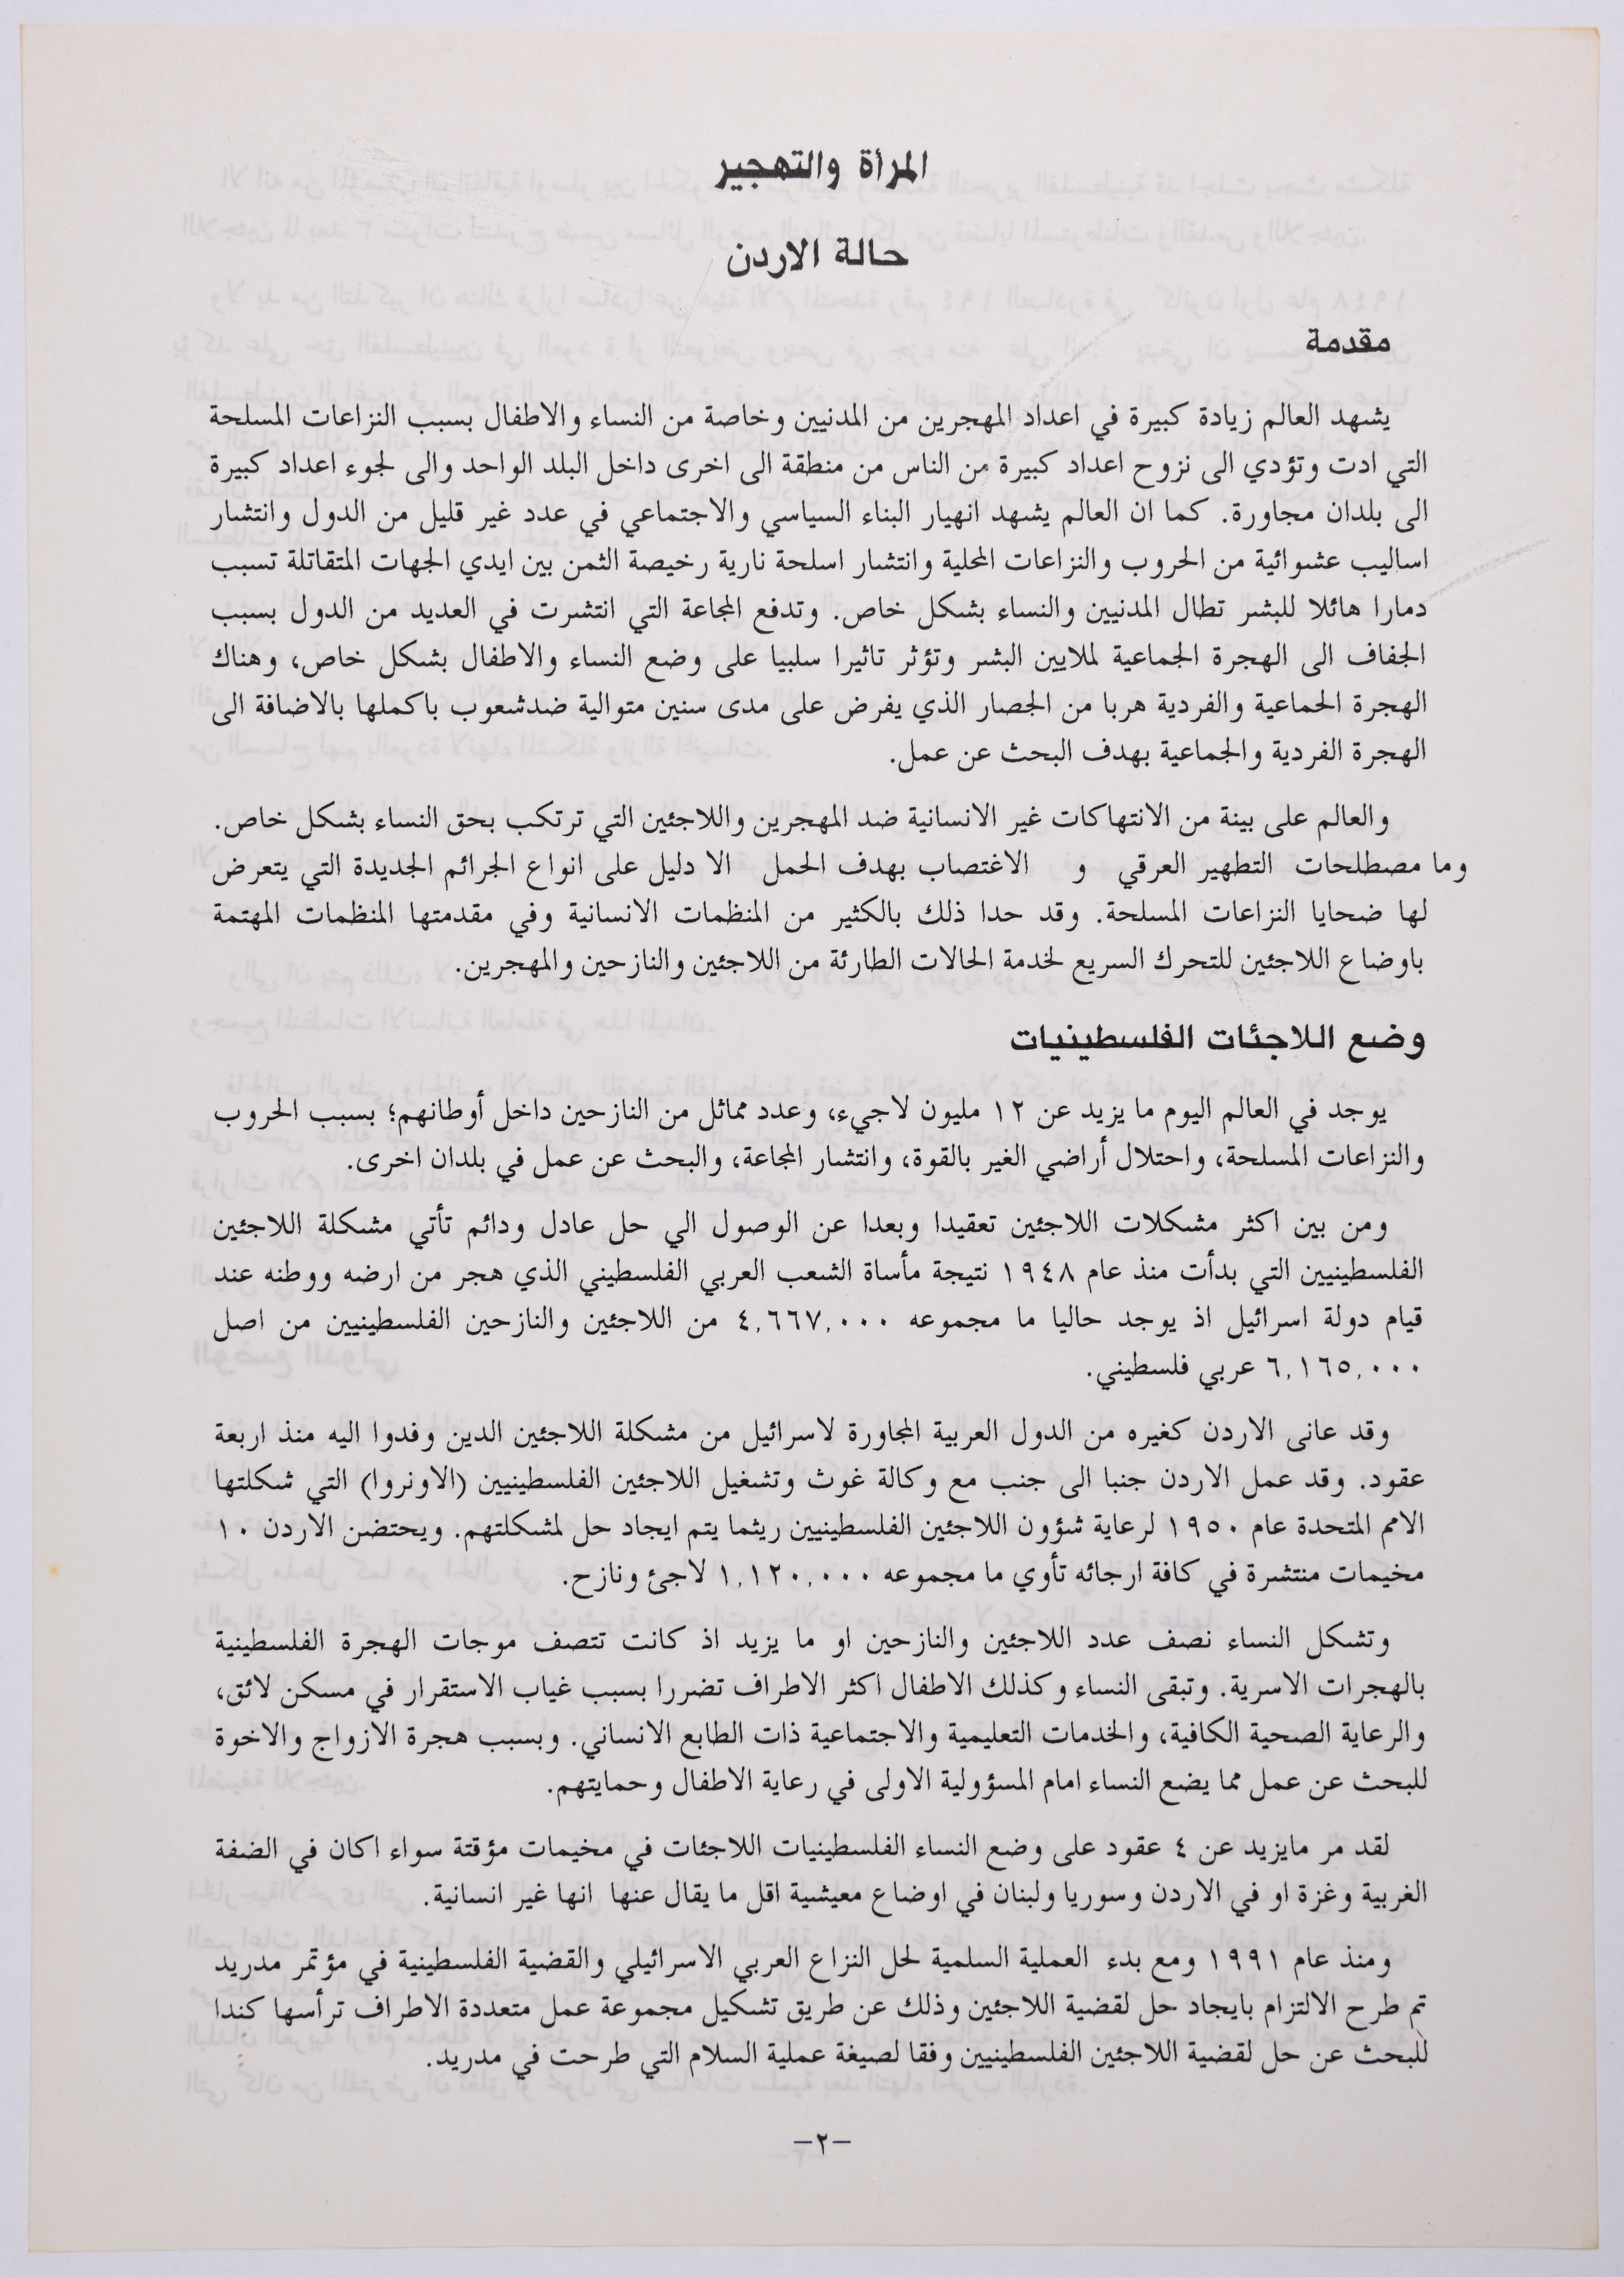 المرأة والتهجير
حالة الاردن
مقدمة
يشهد العالم زيادة كبيرة في اعداد المهجرين من المدنيين وخاصة من النساء والاطفال بسبب النزاعات المسلحة
التي ادت وتؤدي الى نزوح اعداد كبيرة من الناس من منطقة الى اخرى داخل البلد الواحد والى لجوء اعداد كبيرة
الى بلدان مجاورة. كما ان العالم يشهد انهيار البناء السياسي والاجتماعي في عدد غير قليل من الدول وانتشار
اساليب عشوائية من الحروب والنزاعات المحلية وانتشار اسلحة نارية رخيصة الثمن بين ايدي الجهات المتقاتلة تسبب
دمارا هائلا للبشر تطال المدنيين والنساء بشكل خاص. وتدفع المجاعة التي انتشرت في العديد من الدول بسبب
الجفاف الى الهجرة الجماعية لملايين البشر وتؤثر تاثيرا سلبيا على وضع النساء والاطفال بشكل خاص، وهناك
الهجرة الحماعية والفردية هربا من الجصار الذي يفرض على مدى سنين متوالية ضدشعوب باكملها بالاضافة الى
الهجرة الفردية والجماعية بهدف البحث عن عمل.
والعالم على بينة من الانتهاكات غير الانسانية ضد المهجرين واللاجئين التي ترتكب بحق النساء بشكل خاص.
وما مصطلحات التطهير العرقي و الاغتصاب بهدف الحمل الا دليل على انواع الجرائم الجديدة التي يتعرض
لها ضحايا النزاعات المسلحة. وقد حدا ذلك بالكثير من المنظمات الانسانية وفي مقدمتها المنظمات المهتمة
باوضاع اللاجئين للتحرك السريع لخدمة الحالات الطارئة من اللاجئين والنازحين والمهجرين.
وضع اللاجئات الفلسطينيات
يوجد في العالم اليوم ما يزيد عن ١٢ مليون لاجيء، وعدد مماثل من النازحين داخل أوطانهم؛ بسبب الحروب
والنزاعات المسلحة، واحتلال أراضي الغير بالقوة، وانتشار المجاعة، والبحث عن عمل في بلدان اخرى.
ومن بين اكثر مشكلات اللاجئين تعقيدا وبعدا عن الوصول الي حل عادل ودائم تأتي مشكلة اللاجئين
الفلسطينيين التي بدأت منذ عام ١٩٤٨ نتيجة مأساة الشعب العربي الفلسطيني الذي هجر من ارضه ووطنه عند
قيام دولة اسرائيل اذ يوجد حاليا ما مجموعه ٤,٦٦٧,٠٠٠ من اللاجئين والنازحين الفلسطينيين من اصل
٦,١٦٥,٠٠٠ عربي فلسطيني.
وقد عانى الاردن كغيره من الدول العربية المجاورة لاسرائيل من مشكلة اللاجئين الدين وفدوا اليه منذ اربعة
عقود. وقد عمل الاردن جنبا الى جنب مع وكالة غوث وتشغيل اللاجئين الفلسطينيين (الاونروا) التي شكلتها
الامم المتحدة عام ١٩٥٠ لرعاية شؤون اللاجئين الفلسطينيين ريثما يتم ايجاد حل لمشكلتهم. ويحتضن الاردن ١٠
مخيمات منتشرة في كافة ارجائه تأوي ما مجموعه ١,١٢٠,٠٠٠ لاجئ ونازح.
وتشكل النساء نصف عدد اللاجئين والنازحين او ما يزيد اذ كانت تتصف موجات الهجرة الفلسطينية
بالهجرات الاسرية. وتبقى النساء وكذلك الاطفال اكثر الاطراف تضررا بسبب غياب الاستقرار في مسكن لائق،
والرعاية الصحية الكافية، والخدمات التعليمية والاجتماعية ذات الطابع الانساني. وبسبب هجرة الازواج والاخوة
للبحث عن عمل مما يضع النساء امام المسؤولية الاولى في رعاية الاطفال وحمايتهم.
لقد مر مايزيد عن ٤ عقود على وضع النساء الفلسطينيات اللاجئات في مخيمات مؤقتة سواء اكان في الضفة
الغربية وغزة او في الاردن وسوريا ولبنان في اوضاع معيشية اقل ما يقال عنها انها غير انسانية.
ومنذ عام ١٩٩١ ومع بدء العملية السلمية لحل النزاع العربي الاسرائيلي والقضية الفلسطينية في مؤتمر مدريد
تم طرح الالتزام بايجاد حل لقضية اللاجئين وذلك عن طريق تشكيل مجموعة عمل متعددة الاطراف ترأسها كندا
للبحث عن حل لقضية اللاجئين الفلسطينيين وفقا لصيغة عملية السلام التي طرحت في مدريد.
-٢-